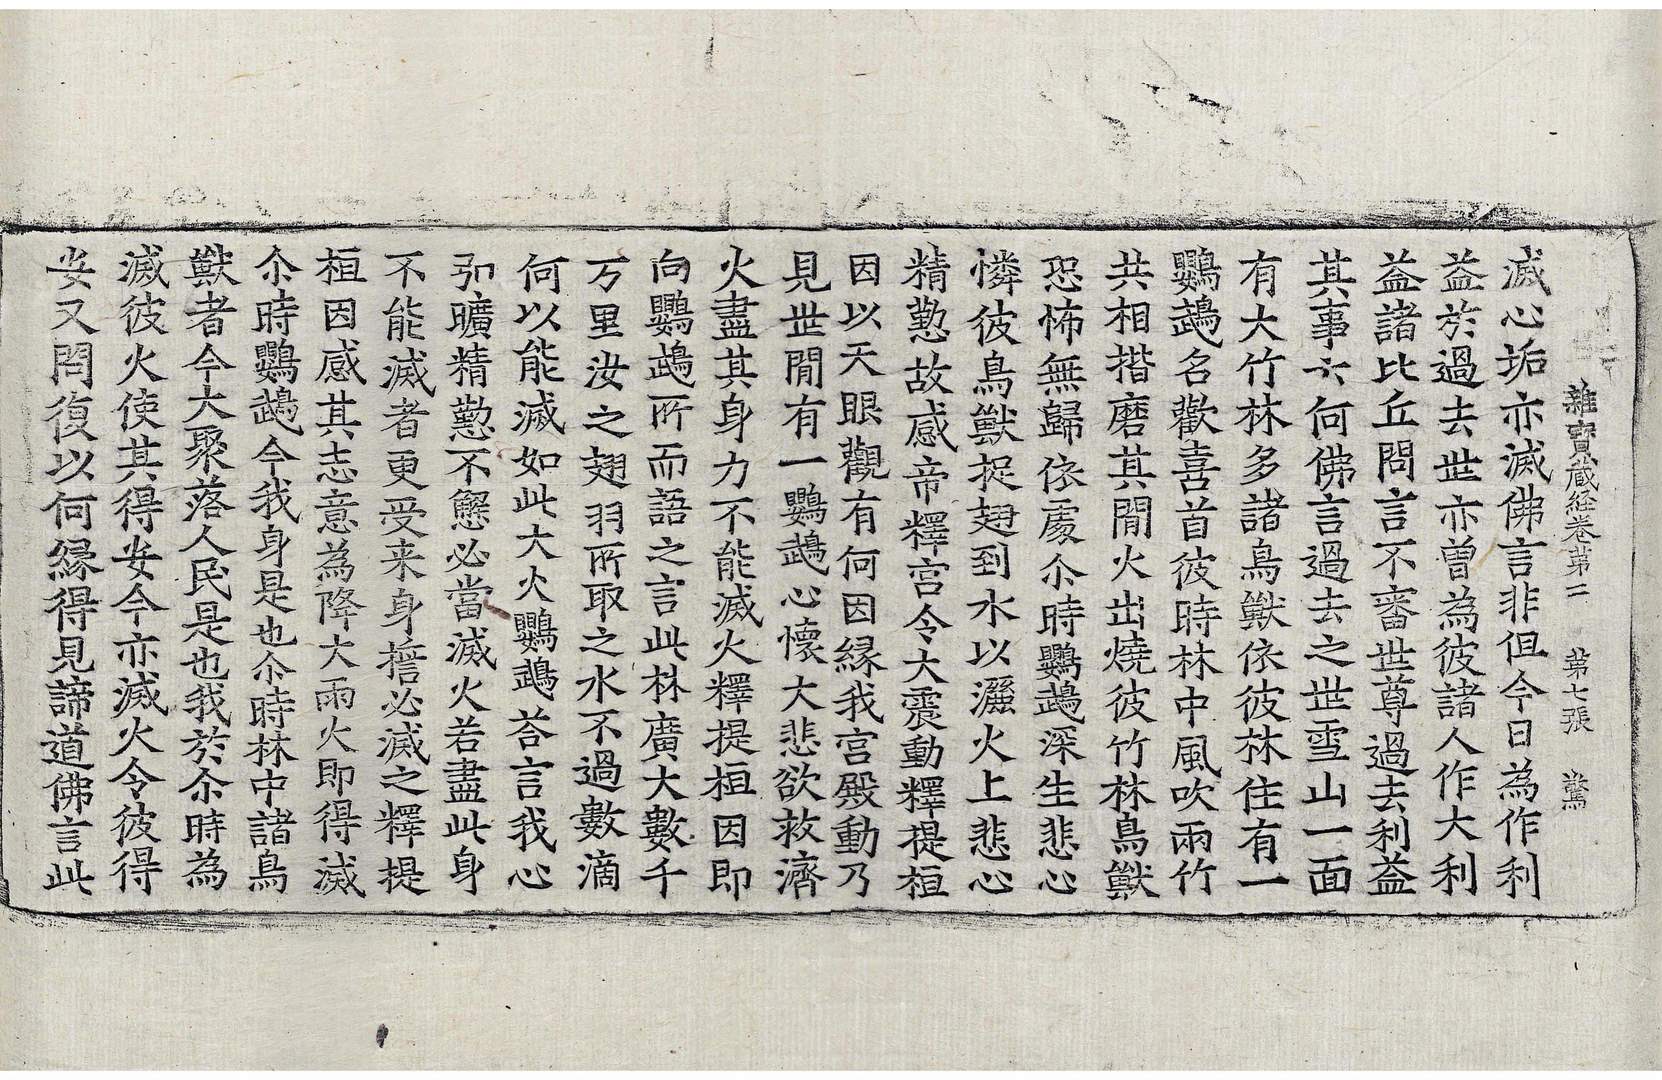 雜寶藏経卷苐二　苐七張　驚
滅心垢亦滅佛言非但今日為作利
益於過去世亦曽為彼諸人作大利
益諸比丘問言不審世尊過去利益
其事云何佛言過去之世雪山一面
有大竹林多諸鳥獸依彼林住有一
鸚鵡名歡喜首彼時林中風吹兩竹
共相揩磨其閒火出燒彼竹林鳥獸
恐怖無歸依處尒時鸚鵡深生悲心
憐彼鳥獸捉翅到水以灑火上悲心
精懃故感帝釋宮令大震動釋提桓
因以天眼觀有何因縁我宮殿動乃
見世閒有一鸚鵡心懷大悲欲救濟
火盡其身力不能滅火釋提桓因即
向鸚鵡所而語之言此林廣大數千
万里汝之翅羽所取之水不過數滴
何以能滅如此大火鸚鵡荅言我心
弘曠精懃不懈必當滅火若盡此身
不能滅者更受来身擔必滅之釋提
桓因感其志意為降大雨火即得滅
尒時鸚鵡今我身是也尒時林中諸鳥
獸者今大聚落人民是也我於尒時為
滅彼火使其得安今亦滅火令彼得
安又問復以何縁得見諦道佛言此